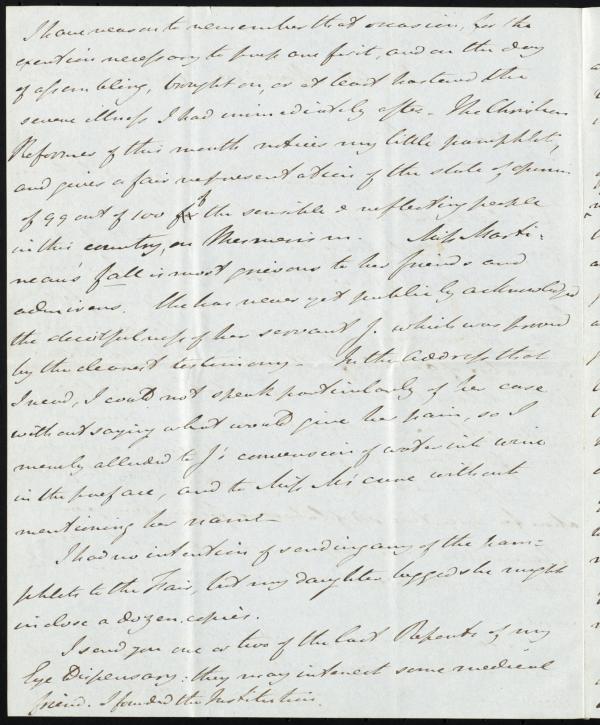 I have reason to remember that occasion, for the
exertion necessary to push one first, and on the day
of assembling, brought on, or at least hastened the
severe illness I had immediately after. The Christian
Reformer of this month notices my little pamphlet,
and gives a fair representation of the state of opinion
of 99 out of 100 of the sensible & reflecting people
in this country, on Mesmerism. Miss Marti-
neau's fall is most grievous to her friends and
admirers. She has never yet publicly acknowledged
the deceitfulness of her servant J. which was proved
by the clearest testimony. In the address that
I read, I could not speak particularly of her case
without saying what would give her pain, so I
merely alluded to J's conversion of water into wine
in the preface, and to Miss M's cure without
mentioning her name.
I had no intention of sending any of the pam-
phlets to the Fair, but my daughter begged she might
inclose a dozen copies.
I send you one or two of the last Reports of my
Eye Dispensary: they may interest some medical
friend. I founded the Institution.